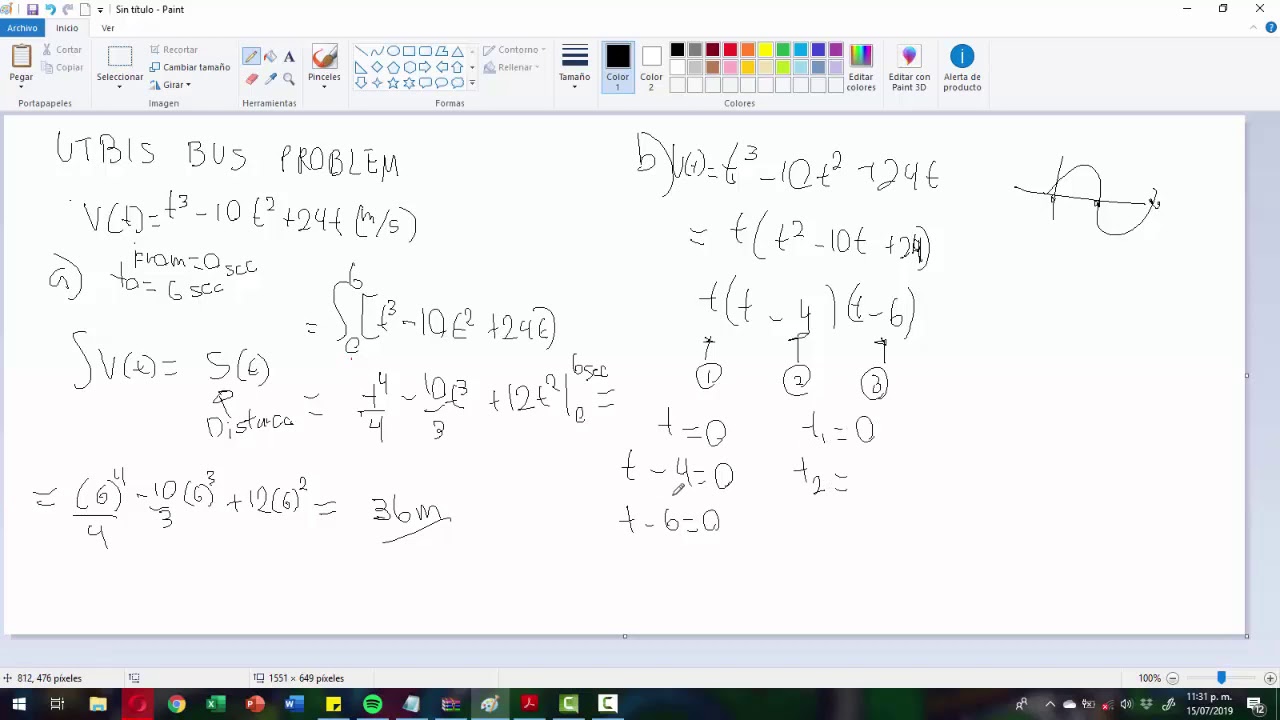 Sin título - Paint
Archivo Inicio Ver
Pegar
Cortar
Copiar
Portapapeles
Seleccionar
Recortar
Cambiar tamaño
Girar
Imagen
A
Herramientas
Pinceles
Contorno
Rellenar
Formas
Tamaño
Color 1
Color 2
Editar colores
Colores
Editar con Paint 3D
Alerta de producto
UTBIS BUS PROBLEM
V(t)= t³ - 10t² + 24t (m/s)
a) From = 0 sec
to = 6 sec
∫ V(t) = S(t)
Distance
= ∫ [t³ - 10t² + 24t)
= t⁴/4 - 10/3 t³ + 12t² | 6sec 0 =
= (6)⁴/4 - 10/3 (6)³ + 12(6)² = 36m
b) V(t) = t³ - 10t² + 24t
= t(t² - 10t + 24)
t(t - 4)(t - 6)
① ② ③
t = 0 t₁ = 0
t - 4 = 0 t₂ =
t - 6 = 0
812, 476 píxeles
1551 × 649 píxeles
100%
11:31 p. m.
15/07/2019
12